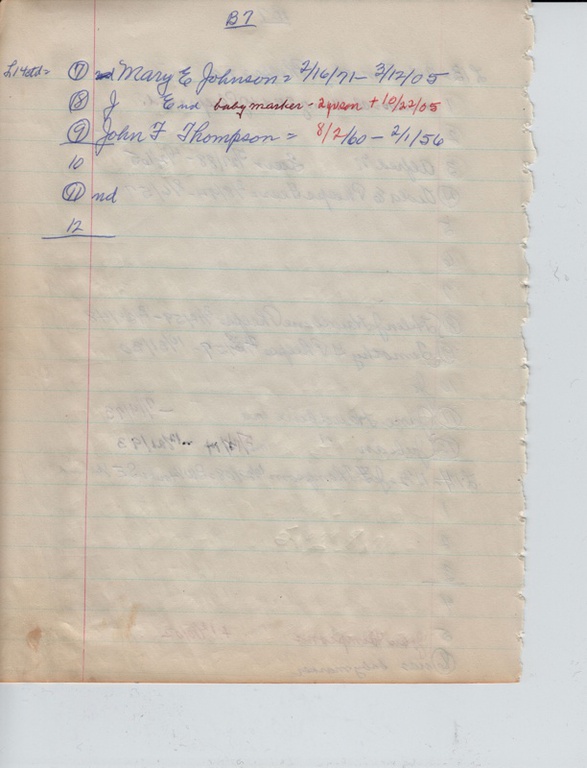 B7
L14 ⑦ nd Mary E Johnson = 2/16/71 - 3/12/05
⑧ J E nd baby marker - 2 + 10/22/05
⑨ John F Thompson = 8/2/60 - 2/1/56
10
⑪ nd
12